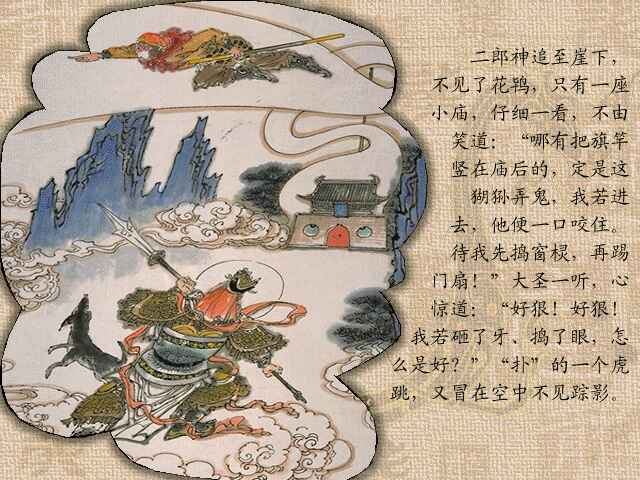 二郎神追至崖下，
不见了花鸨，只有一座
小庙，仔细一看，不由
笑道：“哪有把旗竿
竖在庙后的，定是这
猢狲弄鬼，我若进
去，他便一口咬住。
待我先捣窗棂，再踢
门扇！”大圣一听，心
惊道：“好狠！好狠！
我若砸了牙、捣了眼，怎
么是好？”“扑”的一个虎
跳，又冒在空中不见踪影。